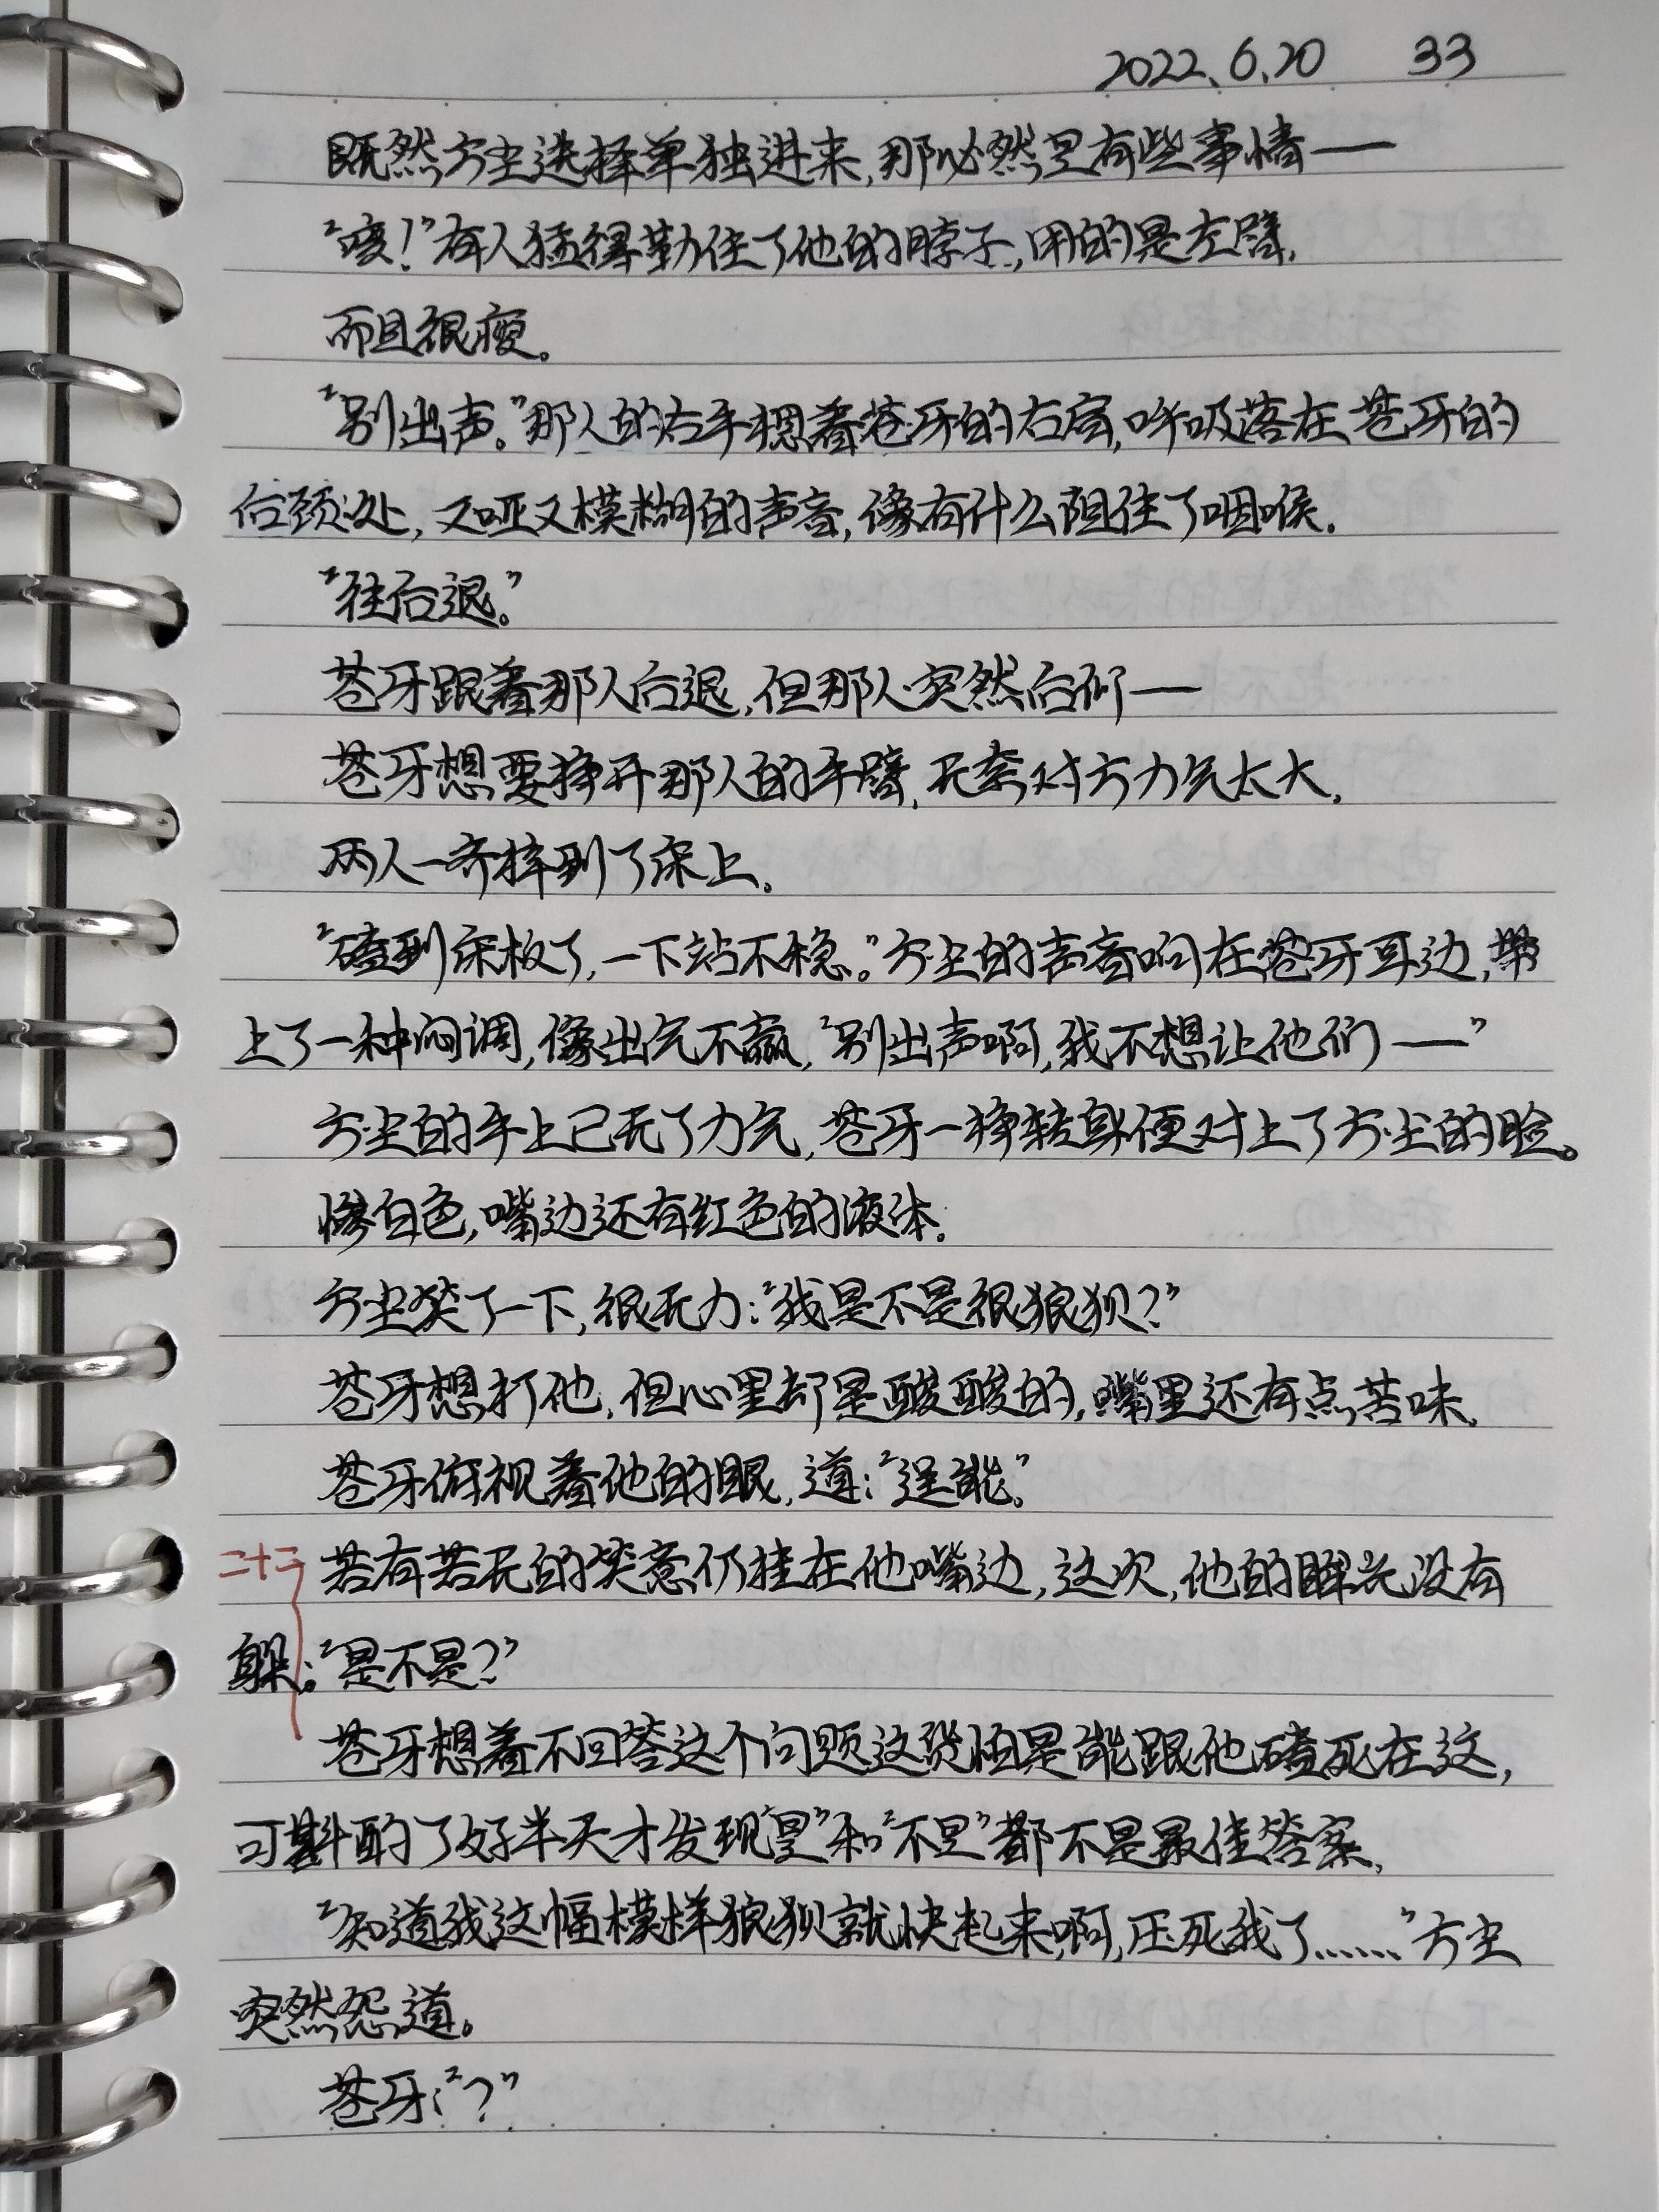 2022.6.20 33
既然方尘选择单独进来,那必然是有些事情——
“唛!”有人猛得勒住了他的脖子,用的是左臂,
而且很瘦。
“别出声。”那人的右手摁着苍牙的右肩,呼吸落在苍牙的
后颈处,又哑又模糊的声音,像有什么阻住了咽喉.
“往后退。”
苍牙跟着那人后退,但那人突然后仰——
苍牙想要挣开那人的手臂,无奈对方力气太大,
两人一齐摔到了床上。
“磕到床板了,一下站不稳。”方尘的声音响在苍牙耳边,带
上了一种闷调,像出气不赢,“别出声啊,我不想让他们——”
方尘的手上已无了力气,苍牙一挣转身便对上了方尘的脸。
惨白色,嘴边还有红色的液体.
方尘笑了一下,很无力:“我是不是很狼狈?”
苍牙想打他,但心里却是酸酸的,嘴里还有点苦味.
苍牙俯视着他的眼,道:“逞能。”
二十二 若有若无的笑意仍挂在他嘴边,这次,他的眸光没有
躲:“是不是?”
苍牙想着不回答这个问题这货怕是能跟他磕死在这,
可斟酌了好半天才发现“是”和“不是”都不是最佳答案.
“知道我这幅模样狼狈就快起来啊,压死我了……”方尘
突然怨道。
苍牙:“?”